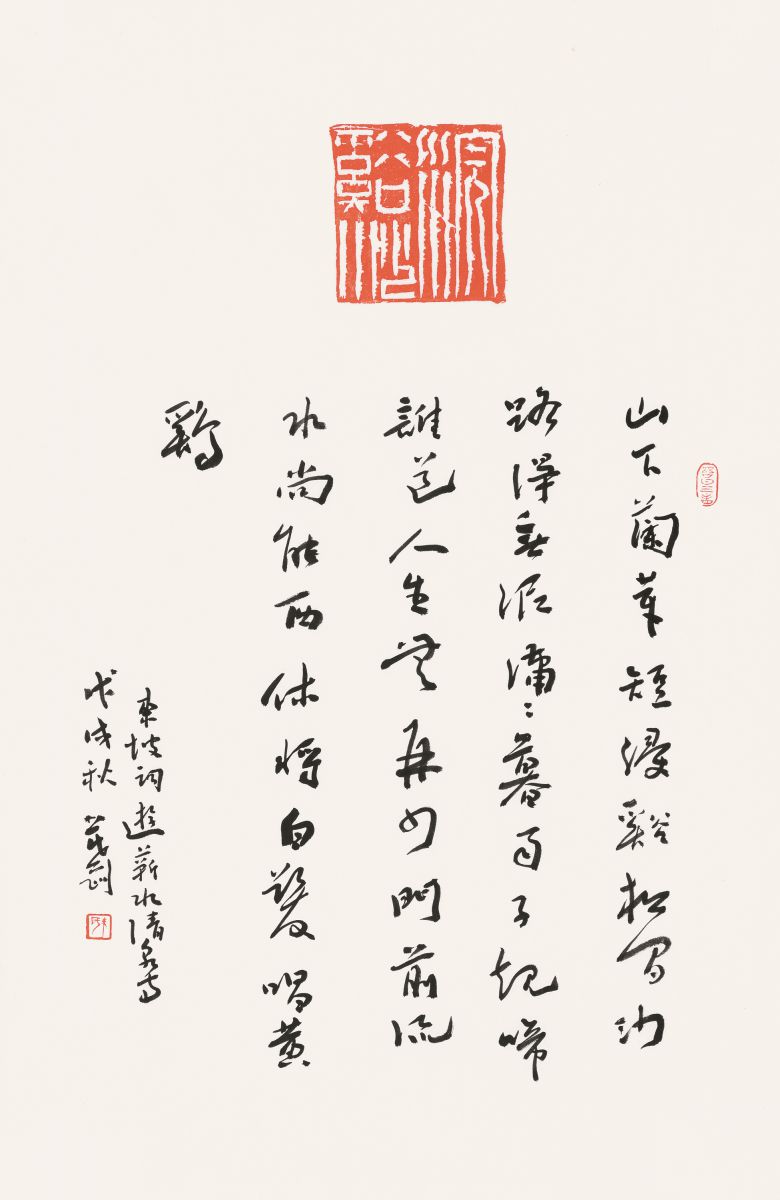 浣谿沙
山下蘭芽短浸谿松間沙
路淨無泥瀟〻暮雨子規啼
誰道人生無再少門前流
水尚能西休將白髮唱黃
鷄
東坡詞遊蘄水清泉寺
戊戌秋